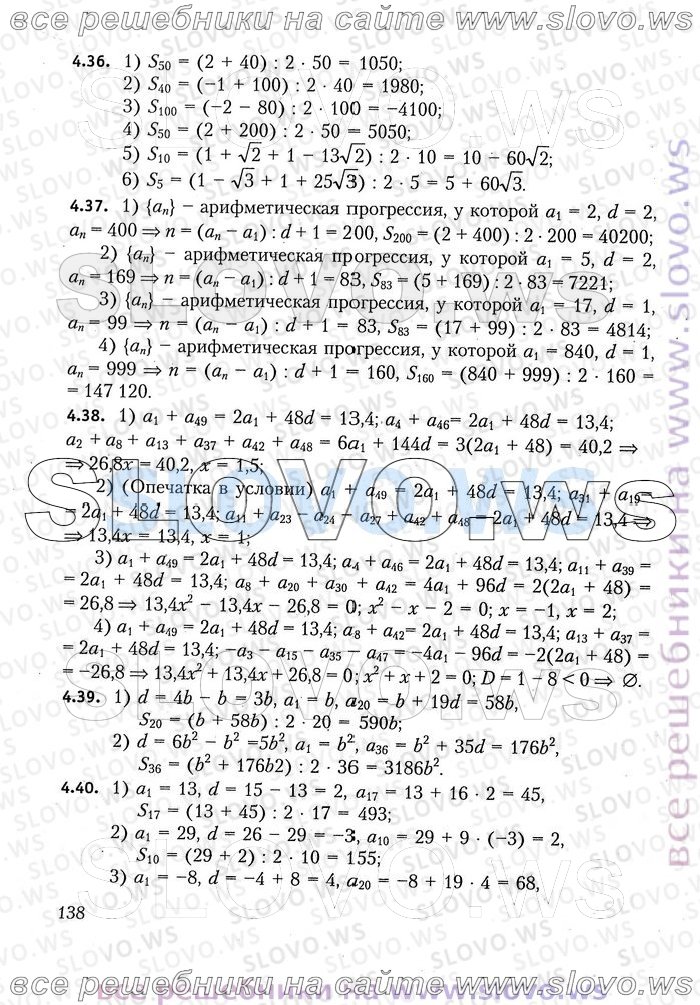 все решебники на сайте www.slovo.ws
4.36. 1) S₅₀ = (2 + 40) : 2 · 50 = 1050;
2) S₄₀ = (−1 + 100) : 2 · 40 = 1980;
3) S₁₀₀ = (−2 − 80) : 2 · 100 = −4100;
4) S₅₀ = (2 + 200) : 2 · 50 = 5050;
5) S₁₀ = (1 + √2 + 1 − 13√2) : 2 · 10 = 10 − 60√2;
6) S₅ = (1 − √3 + 1 + 25√3) : 2 · 5 = 5 + 60√3.
4.37. 1) {aₙ} − арифметическая прогрессия, у которой a₁ = 2, d = 2,
aₙ = 400 ⇒ n = (aₙ − a₁) : d + 1 = 200, S₂₀₀ = (2 + 400) : 2 · 200 = 40200;
2) {aₙ} − арифметическая прогрессия, у которой a₁ = 5, d = 2,
aₙ = 169 ⇒ n = (aₙ − a₁) : d + 1 = 83, S₈₃ = (5 + 169) : 2 · 83 = 7221;
3) {aₙ} − арифметическая прогрессия, у которой a₁ = 17, d = 1,
aₙ = 99 ⇒ n = (aₙ − a₁) : d + 1 = 83, S₈₃ = (17 + 99) : 2 · 83 = 4814;
4) {aₙ} − арифметическая прогрессия, у которой a₁ = 840, d = 1,
aₙ = 999 ⇒ n = (aₙ − a₁) : d + 1 = 160, S₁₆₀ = (840 + 999) : 2 · 160 =
= 147 120.
4.38. 1) a₁ + a₄₉ = 2a₁ + 48d = 13,4; a₄ + a₄₆= 2a₁ + 48d = 13,4;
a₂ + a₈ + a₁₃ + a₃₇ + a₄₂ + a₄₈ = 6a₁ + 144d = 3(2a₁ + 48) = 40,2 ⇒
⇒ 26,8x = 40,2, x = 1,5;
2) (Опечатка в условии) a₁ + a₄₉ = 2a₁ + 48d = 13,4; a₃₁ + a₁₉=
= 2a₁ + 48d = 13,4; a₁₁ + a₂₃ − a₂₄ − a₂₇ + a₄₂ + a₄₈ = 2a₁ + 48d = 13,4 ⇒
⇒ 13,4x = 13,4, x = 1;
3) a₁ + a₄₉ = 2a₁ + 48d = 13,4; a₄ + a₄₆ = 2a₁ + 48d = 13,4; a₁₁ + a₃₉ =
= 2a₁ + 48d = 13,4; a₈ + a₂₀ + a₃₀ + a₄₂ = 4a₁ + 96d = 2(2a₁ + 48) =
= 26,8 ⇒ 13,4x² − 13,4x − 26,8 = 0; x² − x − 2 = 0; x = −1, x = 2;
4) a₁ + a₄₉ = 2a₁ + 48d = 13,4; a₈ + a₄₂= 2a₁ + 48d = 13,4; a₁₃ + a₃₇ =
= 2a₁ + 48d = 13,4; −a₃ − a₁₅ − a₃₅ − a₄₇ = −4a₁ − 96d = −2(2a₁ + 48) =
= −26,8 ⇒ 13,4x² + 13,4x + 26,8 = 0; x² + x + 2 = 0; D = 1 − 8 < 0 ⇒ ∅.
4.39. 1) d = 4b − b = 3b, a₁ = b, a₂₀ = b + 19d = 58b,
S₂₀ = (b + 58b) : 2 · 20 = 590b;
2) d = 6b² − b² =5b², a₁ = b², a₃₆ = b² + 35d = 176b²,
S₃₆ = (b² + 176b2) : 2 · 36 = 3186b².
4.40. 1) a₁ = 13, d = 15 − 13 = 2, a₁₇ = 13 + 16 · 2 = 45,
S₁₇ = (13 + 45) : 2 · 17 = 493;
2) a₁ = 29, d = 26 − 29 = −3, a₁₀ = 29 + 9 · (−3) = 2,
S₁₀ = (29 + 2) : 2 · 10 = 155;
3) a₁ = −8, d = −4 + 8 = 4, a₂₀ = −8 + 19 · 4 = 68,
138
SLOVO.ws
все решебники на www.slovo.ws
все решебники на сайте www.slovo.ws
все решебники на www.slovo.ws